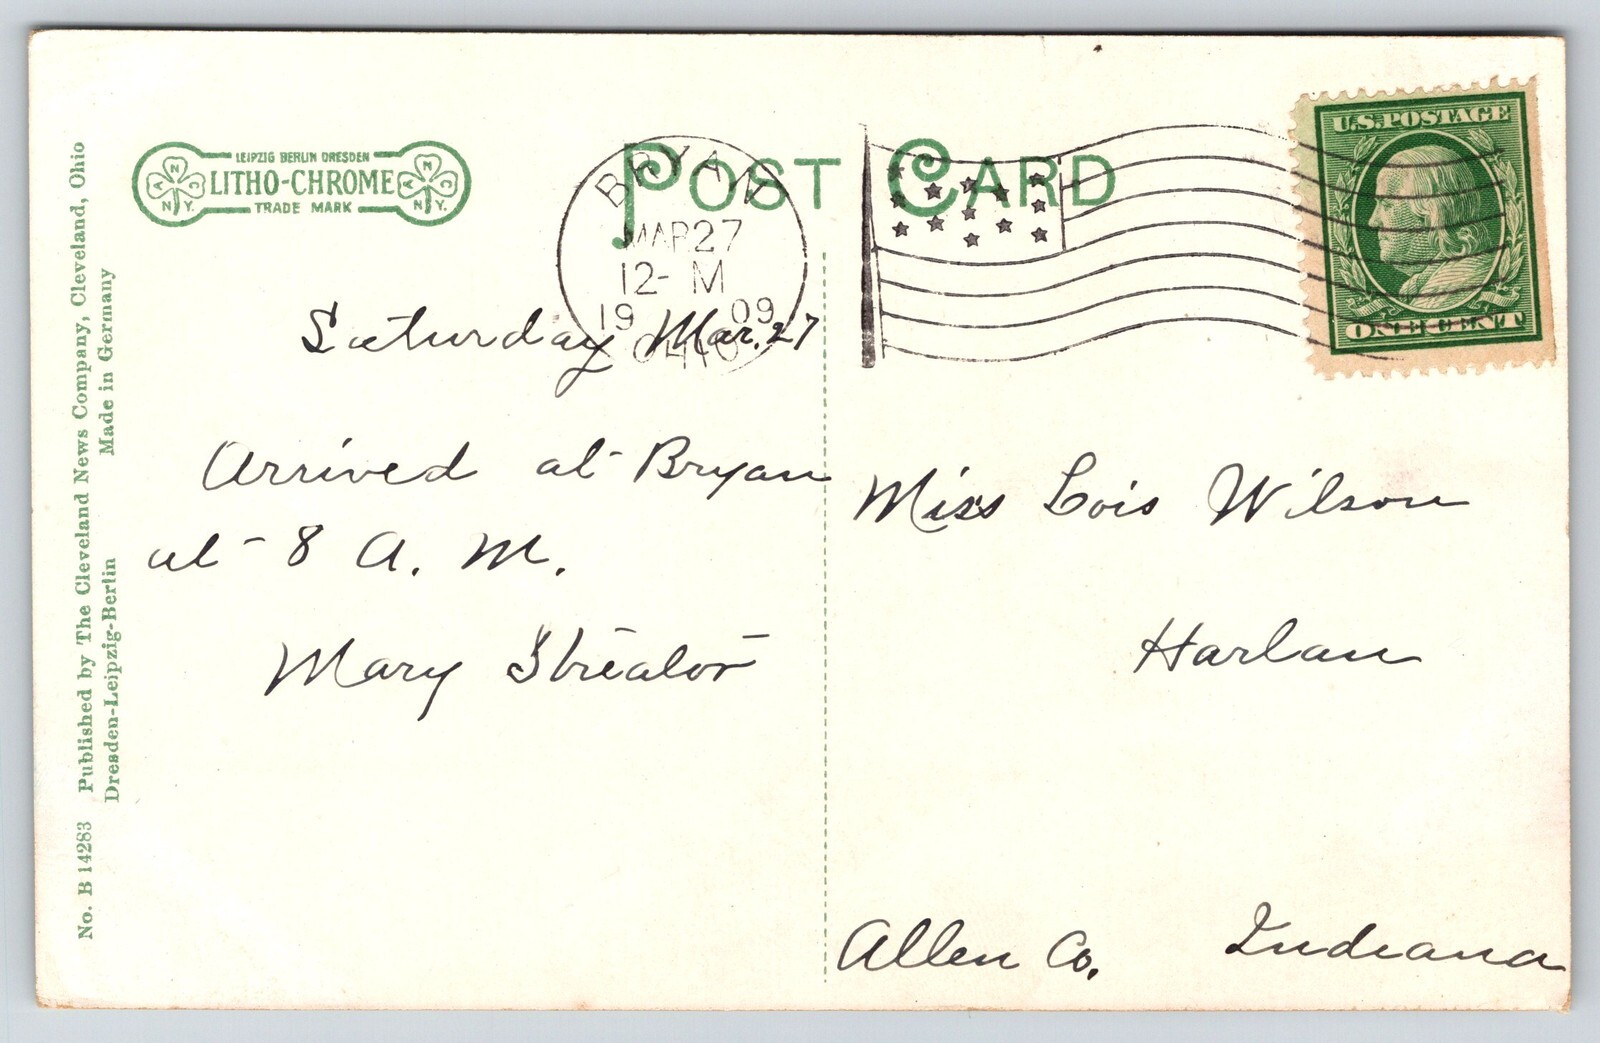 LEIPZIG BERLIN DRESDEN
LITHO-CHROME
TRADE MARK
A N C N.Y.
A N C N.Y.
POST CARD
BRYAN
MAR 27
12- M
19 09
OHIO
U.S. POSTAGE
ONE CENT
Saturday Mar. 27
Arrived at Bryan
at 8 A. M.
Mary Streator
Miss Lois Wilson
Harlan
Allen Co. Indiana
No. B 14283 Published by The Cleveland News Company, Cleveland, Ohio
Dresden-Leipzig-Berlin Made in Germany